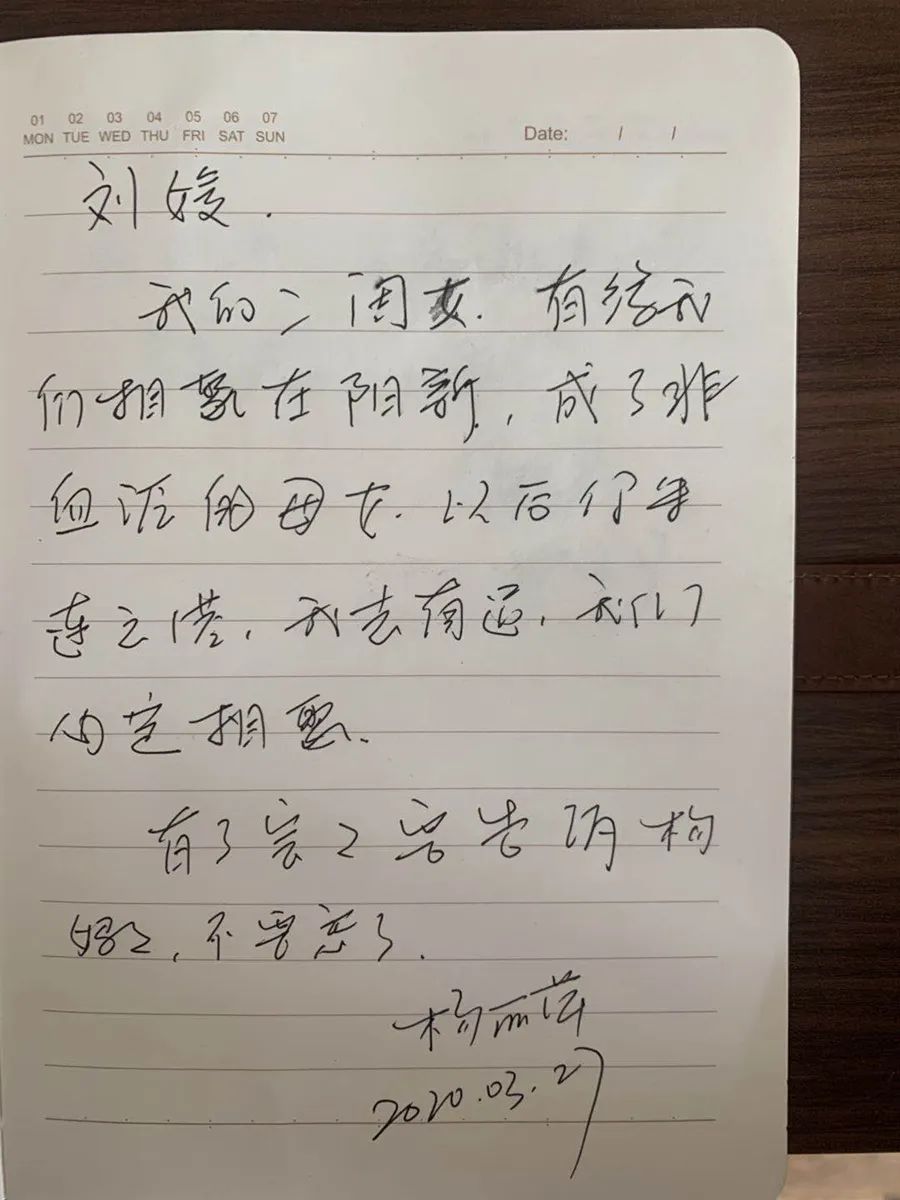 01 02 03 04 05 06 07
MON TUE WED THU FRI SAT SUN Date: / /
刘媛.
我的二闺女. 有缘我
们相聚在阳新, 成了非
血缘的母女. 以后你来
连云港, 我去南通, 我们
约定相聚.
有了宝宝要告诉杨
妈妈, 不要忘了.
杨丽萍
2020.03.27